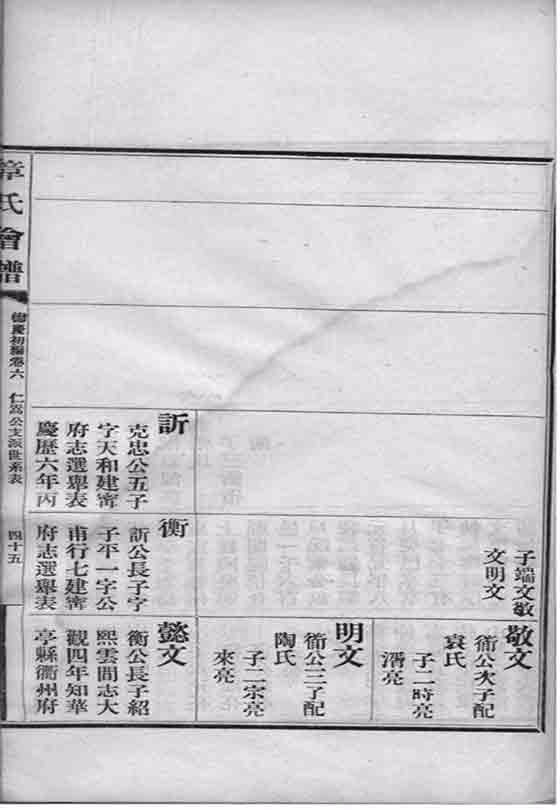 子端文敬
文明文
敬文
衛公次子配
袁氏
子二時亮
湑亮
明文
衛公三子配
陶氏
子二宗亮
來亮
訢
克忠公五子
字天和建寧
府志選舉表
慶歷六年丙
衡
訢公長子字
子平一字公
甫行七建寧
府志選舉表
懿文
衡公長子紹
熙雲間志大
觀四年知華
亭縣衢州府
章氏會譜
德慶初編卷六 仁嵩公支派世系表 四十五